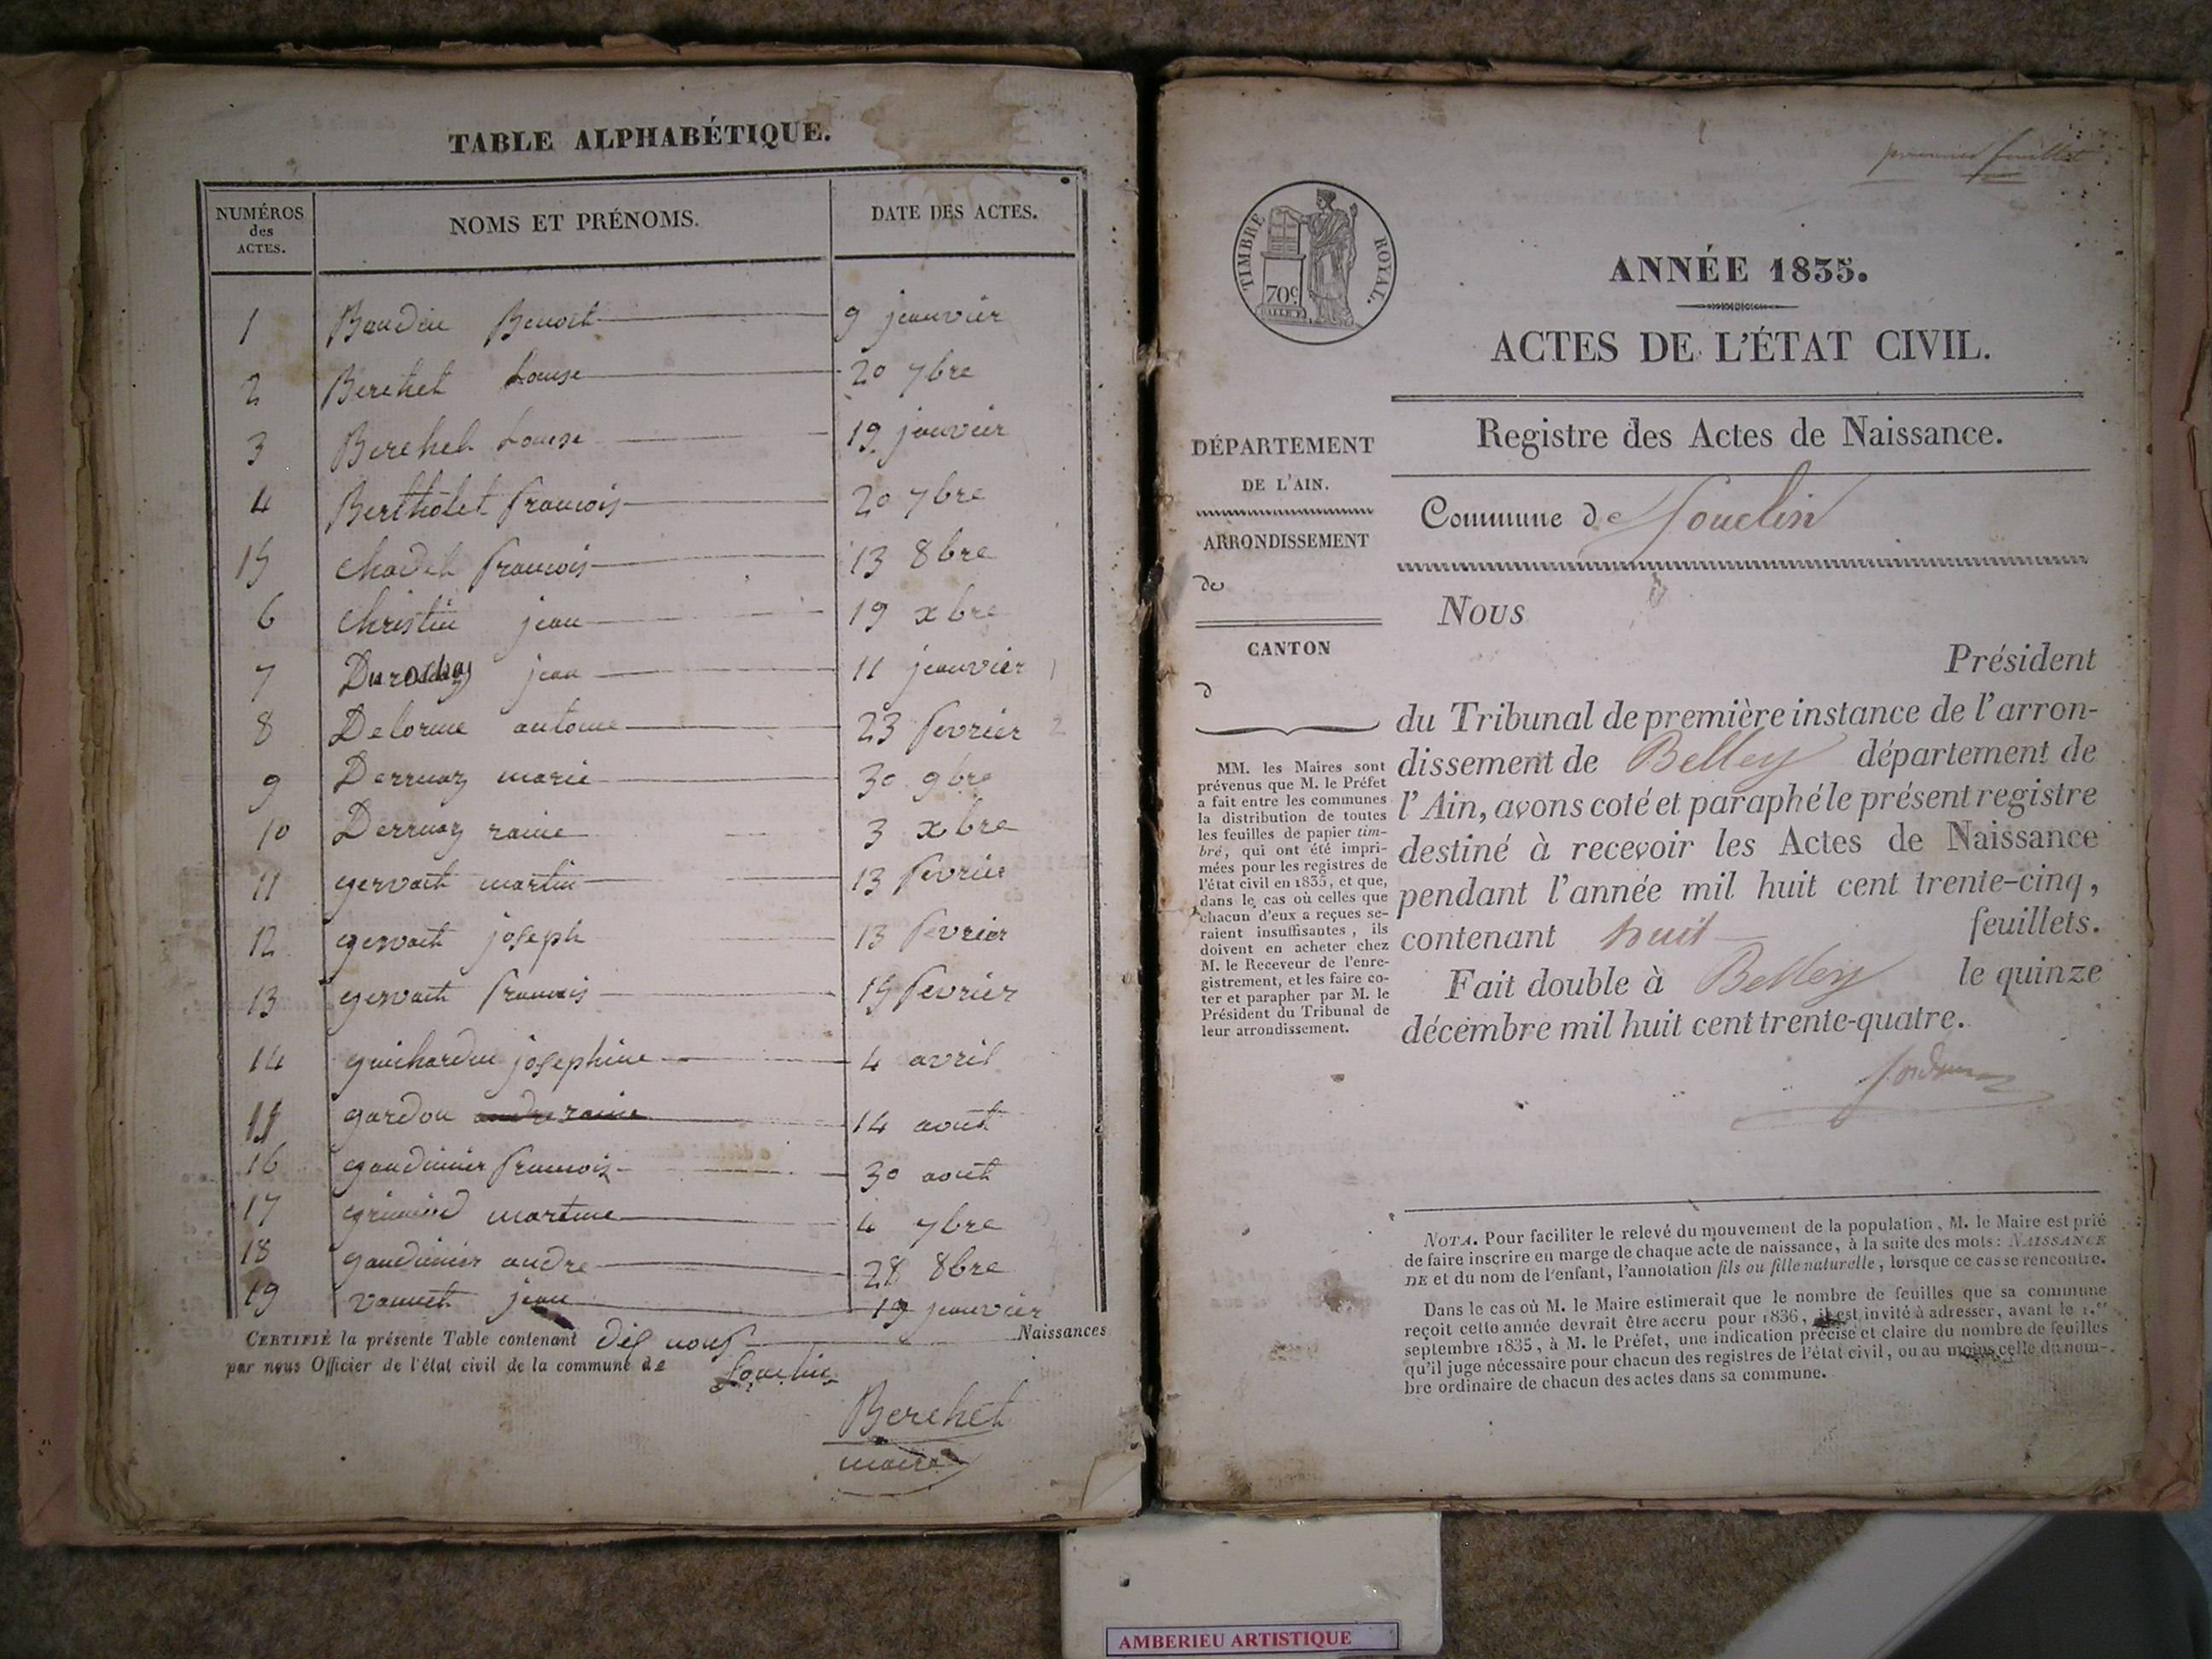 TABLE ALPHABÉTIQUE.
NUMÉROS des ACTES. NOMS ET PRÉNOMS. DATE DES ACTES.
1 Baudin Benoit 9 janvier
2 Berchet Louise 20 7bre
3 Berchet Louise 19 janvier
4 Berthotet francois 20 7bre
15 francois 13 8bre
6 christin jean 19 xbre
7 jean 11 janvier
8 Delorme antoine 23 fevrier
9 Derruaz marie 30 9bre
10 Derruaz raine 3 xbre
11 gervait martin 13 fevrier
12 gervait joseph 13 fevrier
13 gervait francois 15 fevrier
14 guichardin josephine 4 avril
gardon 14 août
16 gaudinier francois 30 août
17 martine 4 7bre
18 gaudinier andre 28 8bre
19 vannet jean 19 janvier
CERTIFIÉ la présente Table contenant dis nouf Naissances
par nous Officier de l'état civil de la commune de Souclin
Berchet
maire
premier feuillet
TIMBRE ROYAL.
70c
ANNÉE 1835.
ACTES DE L'ÉTAT CIVIL.
Registre des Actes de Naissance.
DÉPARTEMENT
DE L'AIN.
ARRONDISSEMENT
de
CANTON
d
Commune de Souclin
Nous
Président
du Tribunal de première instance de l'arron-
dissement de Belley département de
l'Ain, avons coté et paraphé le présent registre
destiné à recevoir les Actes de Naissance
pendant l'année mil huit cent trente-cinq,
contenant huit feuillets.
Fait double à Belley le quinze
décembre mil huit cent trente-quatre.
MM. les Maires sont
prévenus que M. le Préfet
a fait entre les communes
la distribution de toutes
les feuilles de papier tim-
bré, qui ont été impri-
mées pour les registres de
l'état civil en 1835, et que,
dans le cas où celles que
chacun d'eux a reçues se-
raient insuffisantes, ils
doivent en acheter chez
M. le Receveur de l'enre-
gistrement, et les faire co-
ter et parapher par M. le
Président du Tribunal de
leur arrondissement.
NOTA. Pour faciliter le relevé du mouvement de la population, M. le Maire est prié
de faire inscrire en marge de chaque acte de naissance, à la suite des mots: NAISSANCE
DE et du nom de l'enfant, l'annotation fils ou fille naturelle, lorsque ce cas se rencontre.
Dans le cas où M. le Maire estimerait que le nombre de feuilles que sa commune
reçoit cette année devrait être accru pour 1836, il est invité à adresser, avant le 1.er
septembre 1835, à M. le Préfet, une indication précise et claire du nombre de feuilles
qu'il juge nécessaire pour chacun des registres de l'état civil, ou au moins celle du nom-
bre ordinaire de chacun des actes dans sa commune.
AMBERIEU ARTISTIQUE